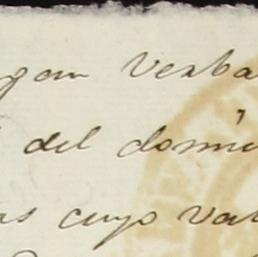 gan Verba
del domi
as cuyo val